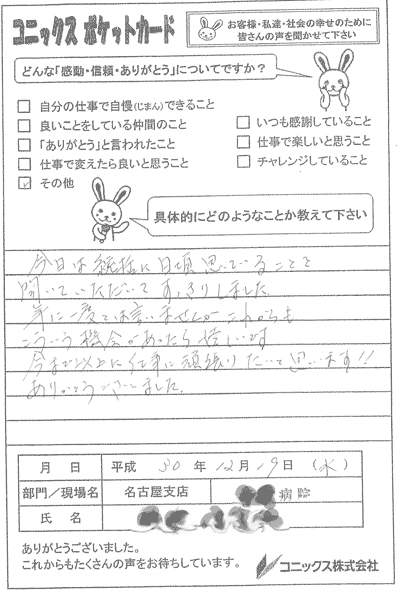 コニックス ポケットカード
お客様・私達・社会の幸せのために
皆さんの声を聞かせて下さい
どんな「感動・信頼・ありがとう」についてですか?
自分の仕事で自慢(じまん)できること
良いことをしている仲間のこと
いつも感謝していること
「ありがとう」と言われたこと
仕事で楽しいと思うこと
仕事で変えたら良いと思うこと
チャレンジしていること
その他
具体的にどのようなことか教えて下さい
今日は統括に日頃思っていることを
聞いていただいてすっきりしました
年に一度とは言いませんがこれからも
こういう機会があったら嬉しいです
今まで以上に仕事に頑張りたいと思います!!
ありがとうございました
月 日 平成 30 年 12 月 19 日 (水)
部門/現場名 名古屋支店 病院
氏 名
ありがとうございました。
これからもたくさんの声をお待ちしています。
コニックス株式会社